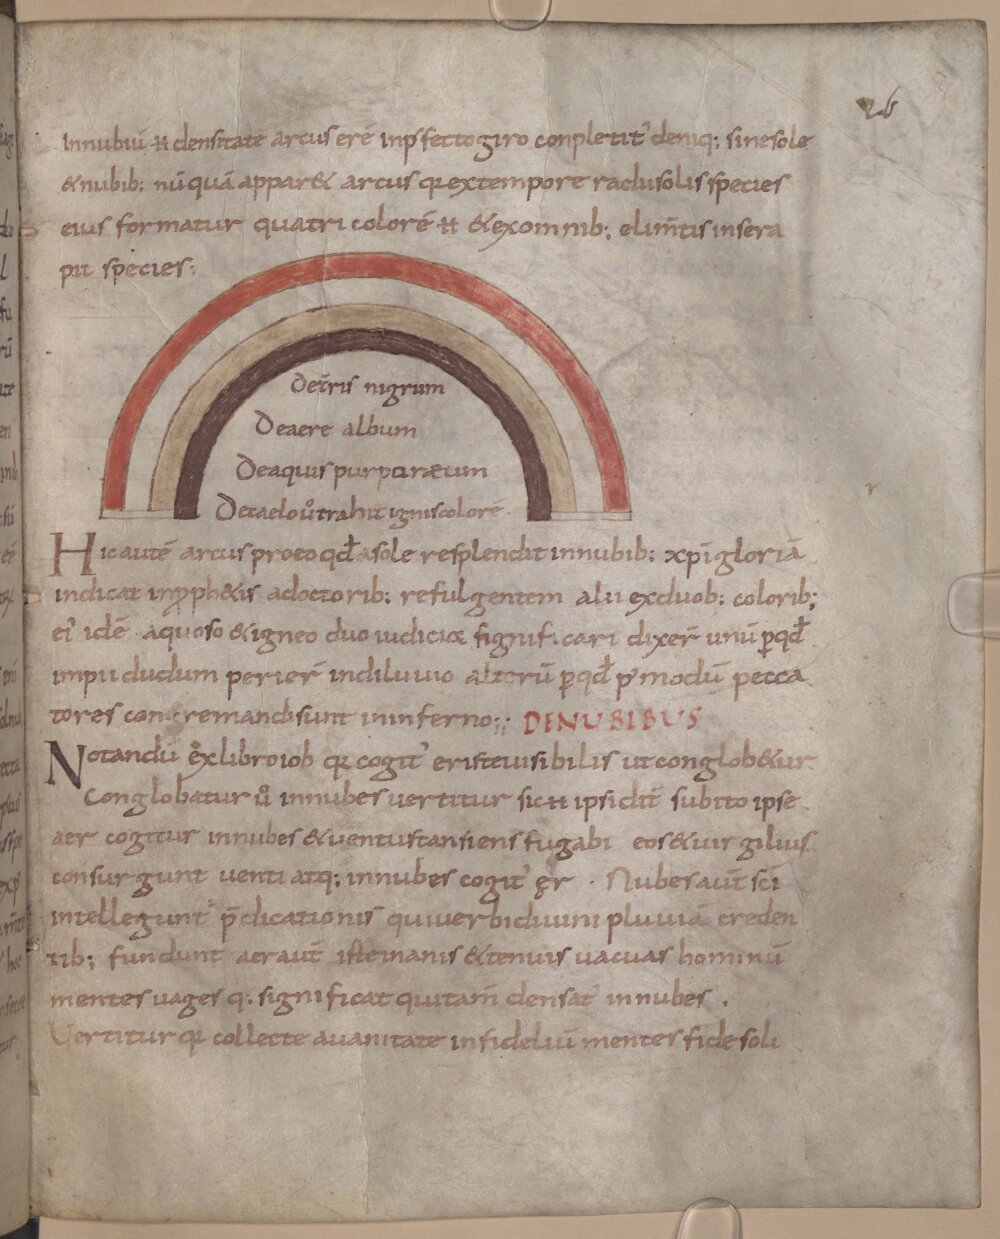 26
Innubiū ÷ densitate arcus erē inpfecto giro conpletit' deniq; sine sole
& nubib; nūquā appar& arcus qr ex tempore radii solis species
eius formatur quatri colorē ÷ & ex omnib; elim̄tis in se ra
pit species;
De tr̄is nigrum
De aere album
De aquis purpuraeum
De caelo ů trahit ignis colorē.
Hic autē arcus pro eo qđ a sole resplendit in nubib; xp̄i gloriā
indicat in pph&is a doctorib; refulgentem alii ex duob; colorib;
ei' idē aquoso & igneo duo iudicia significari dixer̄ unū p̱ qđ
impii dudum perier̄ in diluvio alterū p̱ qđ p' modū pecca
tores concremandi sunt in inferno;; DE NUBIBUS
Notandū ex libro iob qr cogit' er iste visibilis ut conglob&ur
Conglobatur ů in nubes vertitur sic ÷ ipsi dit̄ subito ipse
aer cogitur in nubes & ventus tansiens fugabi eos & virgilius
consurgunt venti atq; in nubes cogit' ęr. Nubes aut̄ sc̄i
intellegunt' p̄dicationis qui verbi divini pluviā creden
tib; fundunt aer aut̄ iste inanis & tenuis vacuas hominū
mentes vages q; significat qui tam̄ densat' in nubes.
Vertitur qr collecte a vanitate infideliū mentes fide soli